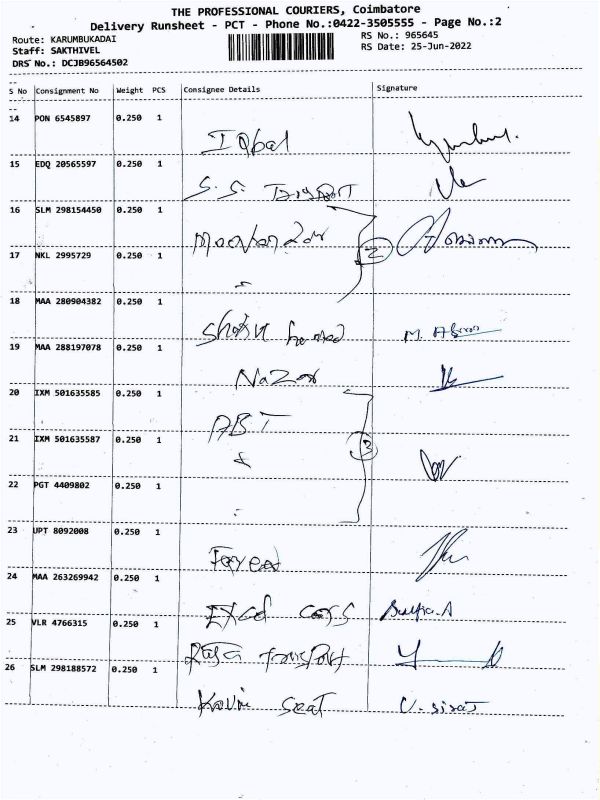 THE PROFESSIONAL COURIERS, Coimbatore
Delivery Runsheet - PCT - Phone No.:0422-3505555 - Page No.:2
Route: KARUMBUKADAI
RS No.: 965645
Staff: SAKTHIVEL
RS Date: 25-Jun-2022
DRS No.: DCJB96564502
S No Consignment No Weight PCS Consignee Details Signature
14 PON 6545897 0.250 1 Iqbal
15 EDQ 20565597 0.250 1 S.S. Transport
16 SLM 298154450 0.250 1
17 NKL 2995729 0.250 1 2
18 MAA 280904382 0.250 1
19 MAA 288197078 0.250 1 Nazar
20 IXM 501635585 0.250 1 ABT
21 IXM 501635587 0.250 1 3
22 PGT 4409802 0.250 1
23 UPT 8092008 0.250 1
24 MAA 263269942 0.250 1
25 VLR 4766315 0.250 1 Transport
26 SLM 298188572 0.250 1 Seat